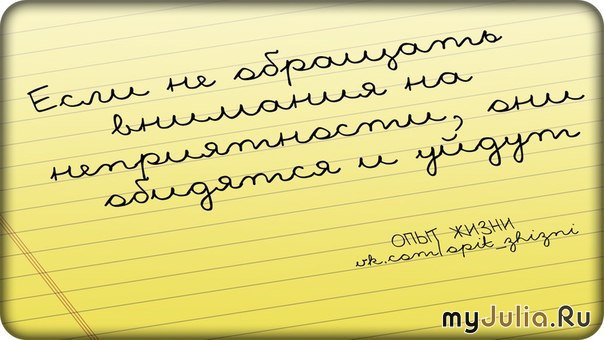 Если не обращать
внимания на
неприятности, они
обидятся и уйдут
ОПЫТ ЖИЗНИ
vk.com/opit_zhizni
myJulia.Ru